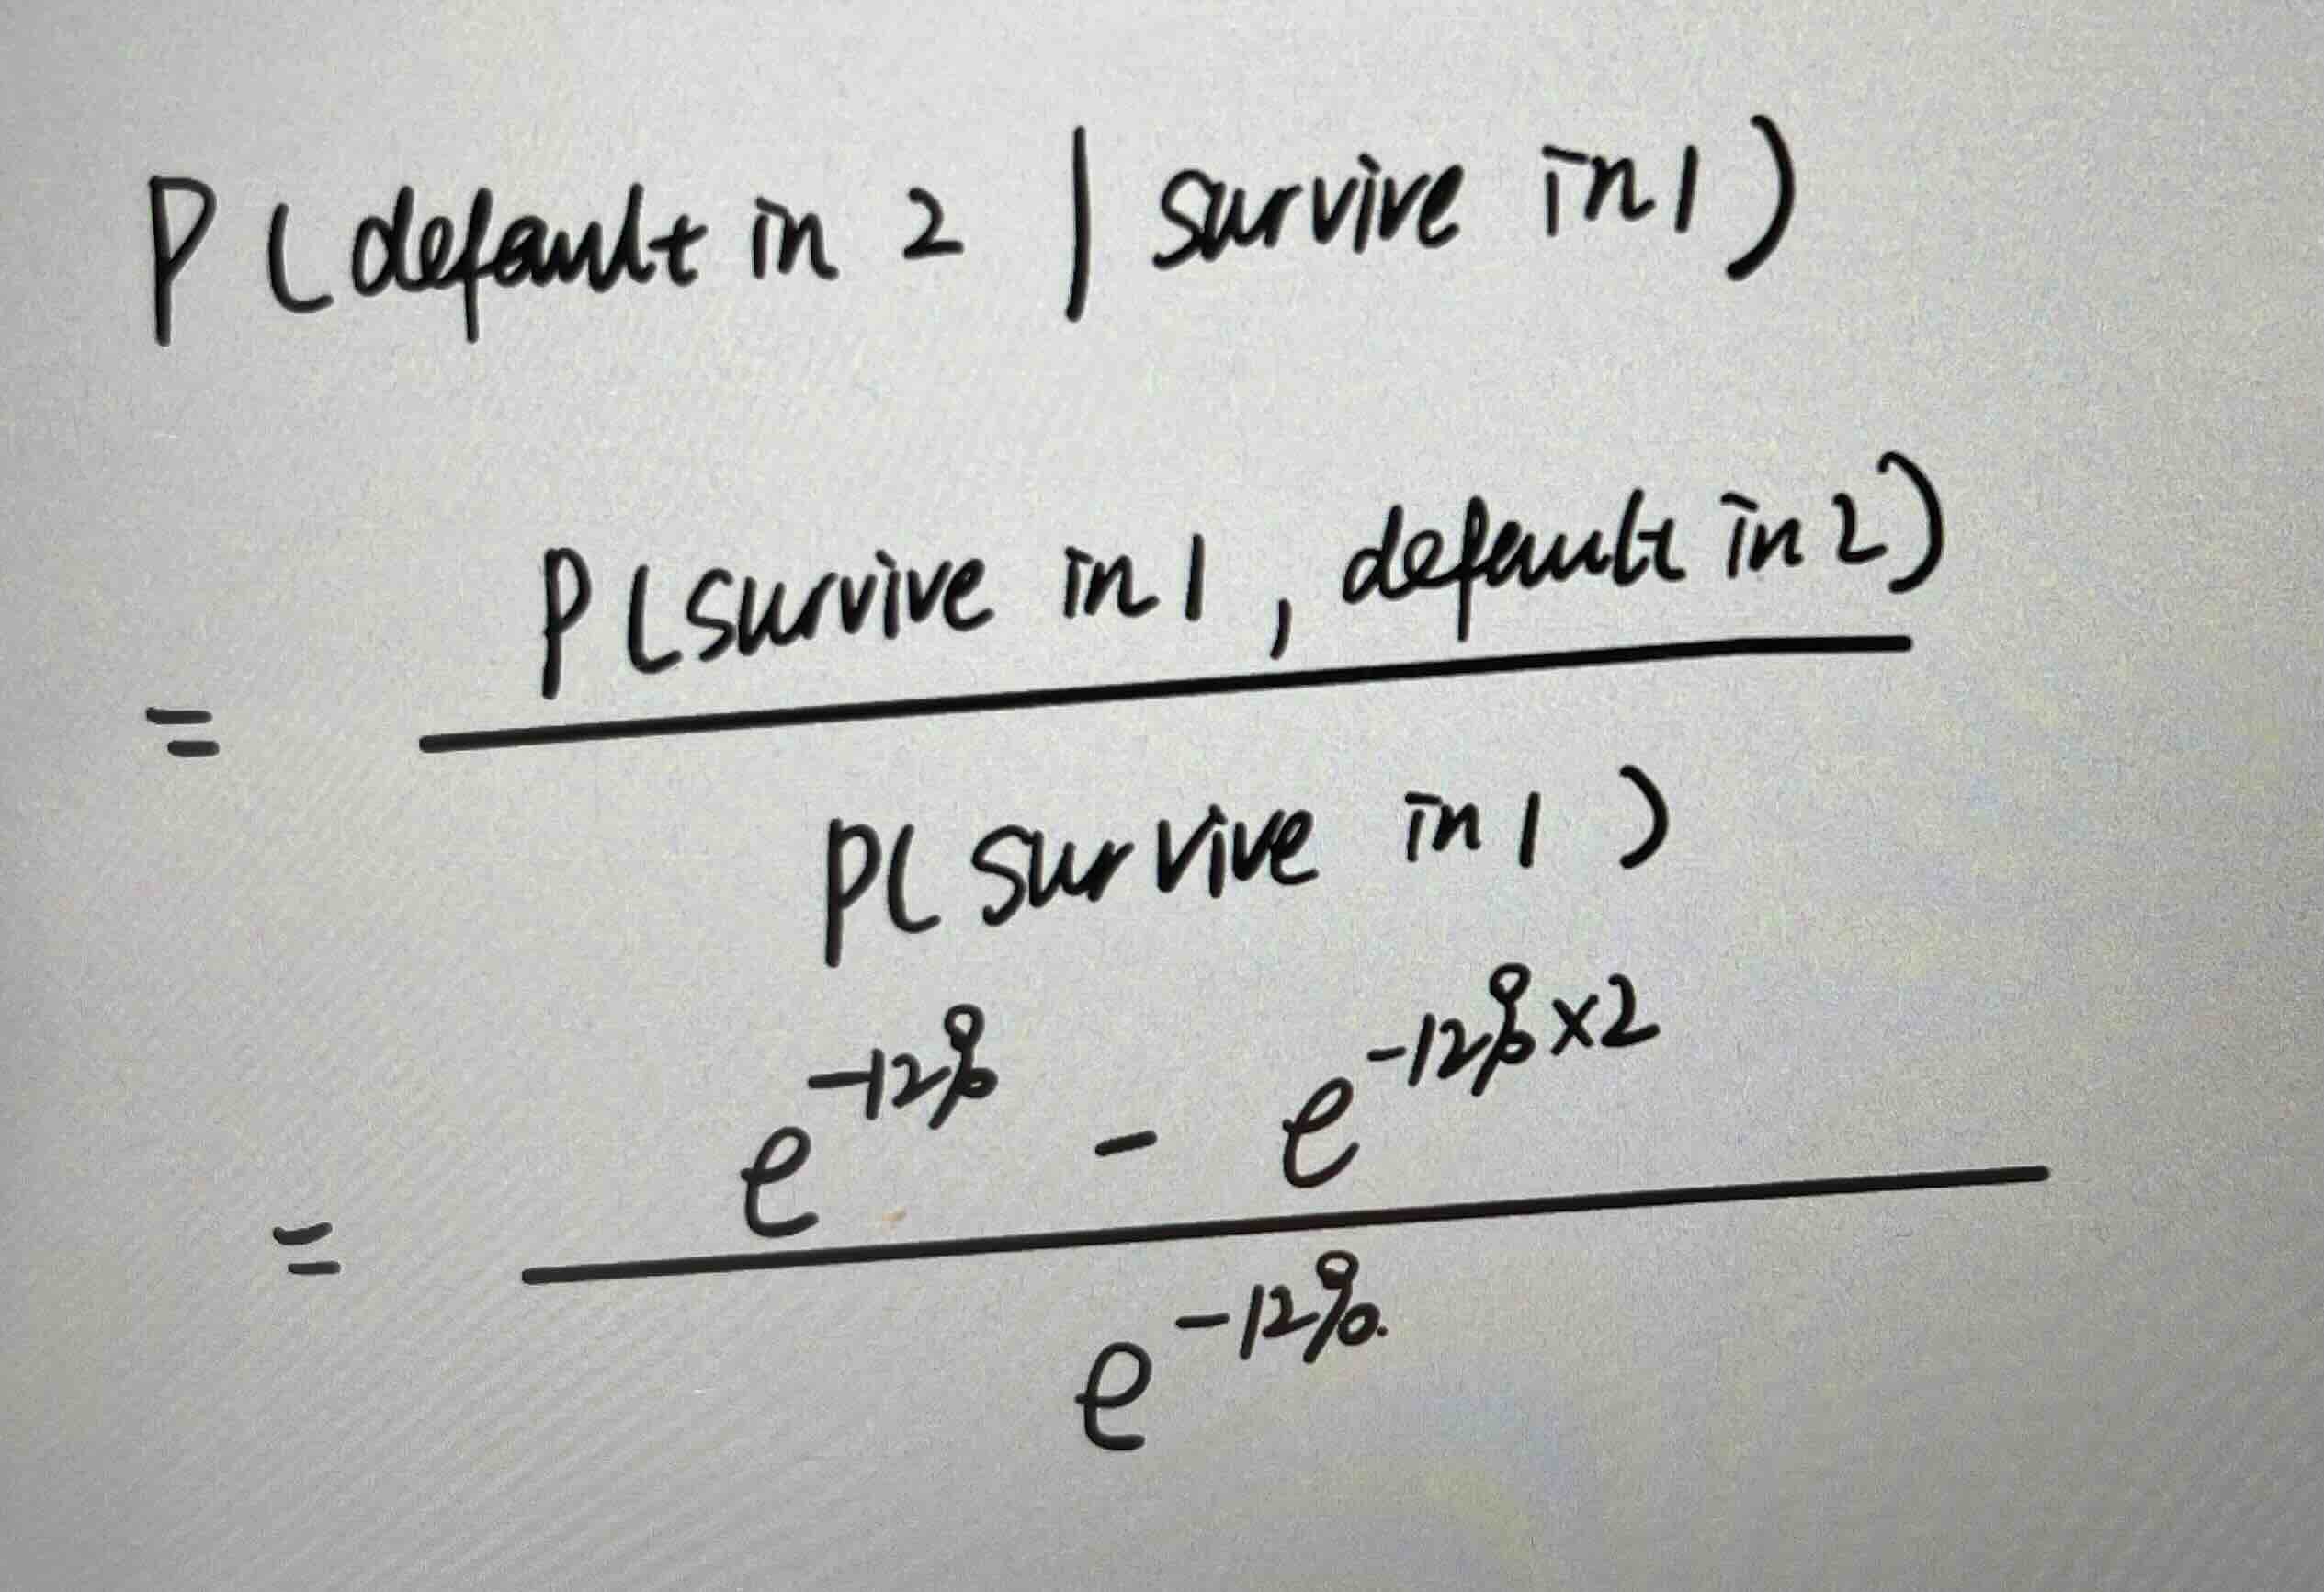 P(default in 2 | survive in 1)
P(survive in 1, default in 2)
=
P(survive in 1)
e^-12% - e^-12%×2
=
e^-12%.